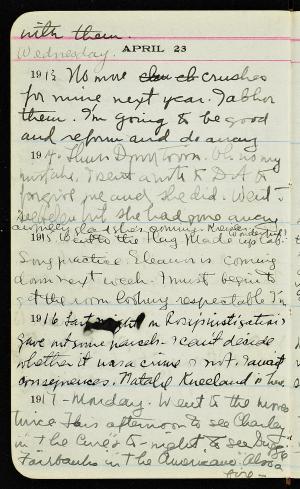 with them.
Wednesday.
APRIL 23
1913 No more crushes
for mine next year. I abhor
them. I'm going to be good
and reform and do away
1914. Thurs. Down town. Oh no my
mistake. I sent a note to D.A. to
forgive me and she did. Went
see her but she had gone away
awfully glad she's coming
wonderful!
1915 Went to the Made up
Song practice. Eleanor is coming
down next week. I must begin to
get the room looking respectable I'm
1916 Last night on Rosi's instigation I
gave out some panels. I can't decide
whether it was a crime or not. I await
consequences. Natalie Kneeland is here.
1917 - Monday. Went to the movies
twice this afternoon to see Charley
in "the Cure" & to-night to see Dougie
Fairbanks in the Americano. Also a
fire -